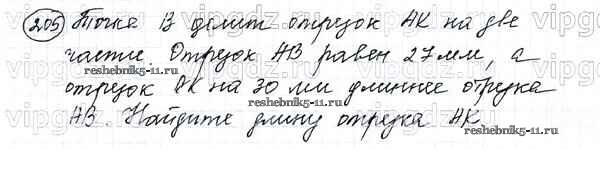 205) Точка В делит отрезок АК на две
части. Отрезок АВ равен 27 мм, а
отрезок ВК на 30 мм длиннее отрезка
АВ. Найдите длину отрезка АК
reshebnik5-11.ru
reshebnik5-11.ru
reshebnik5-11.ru